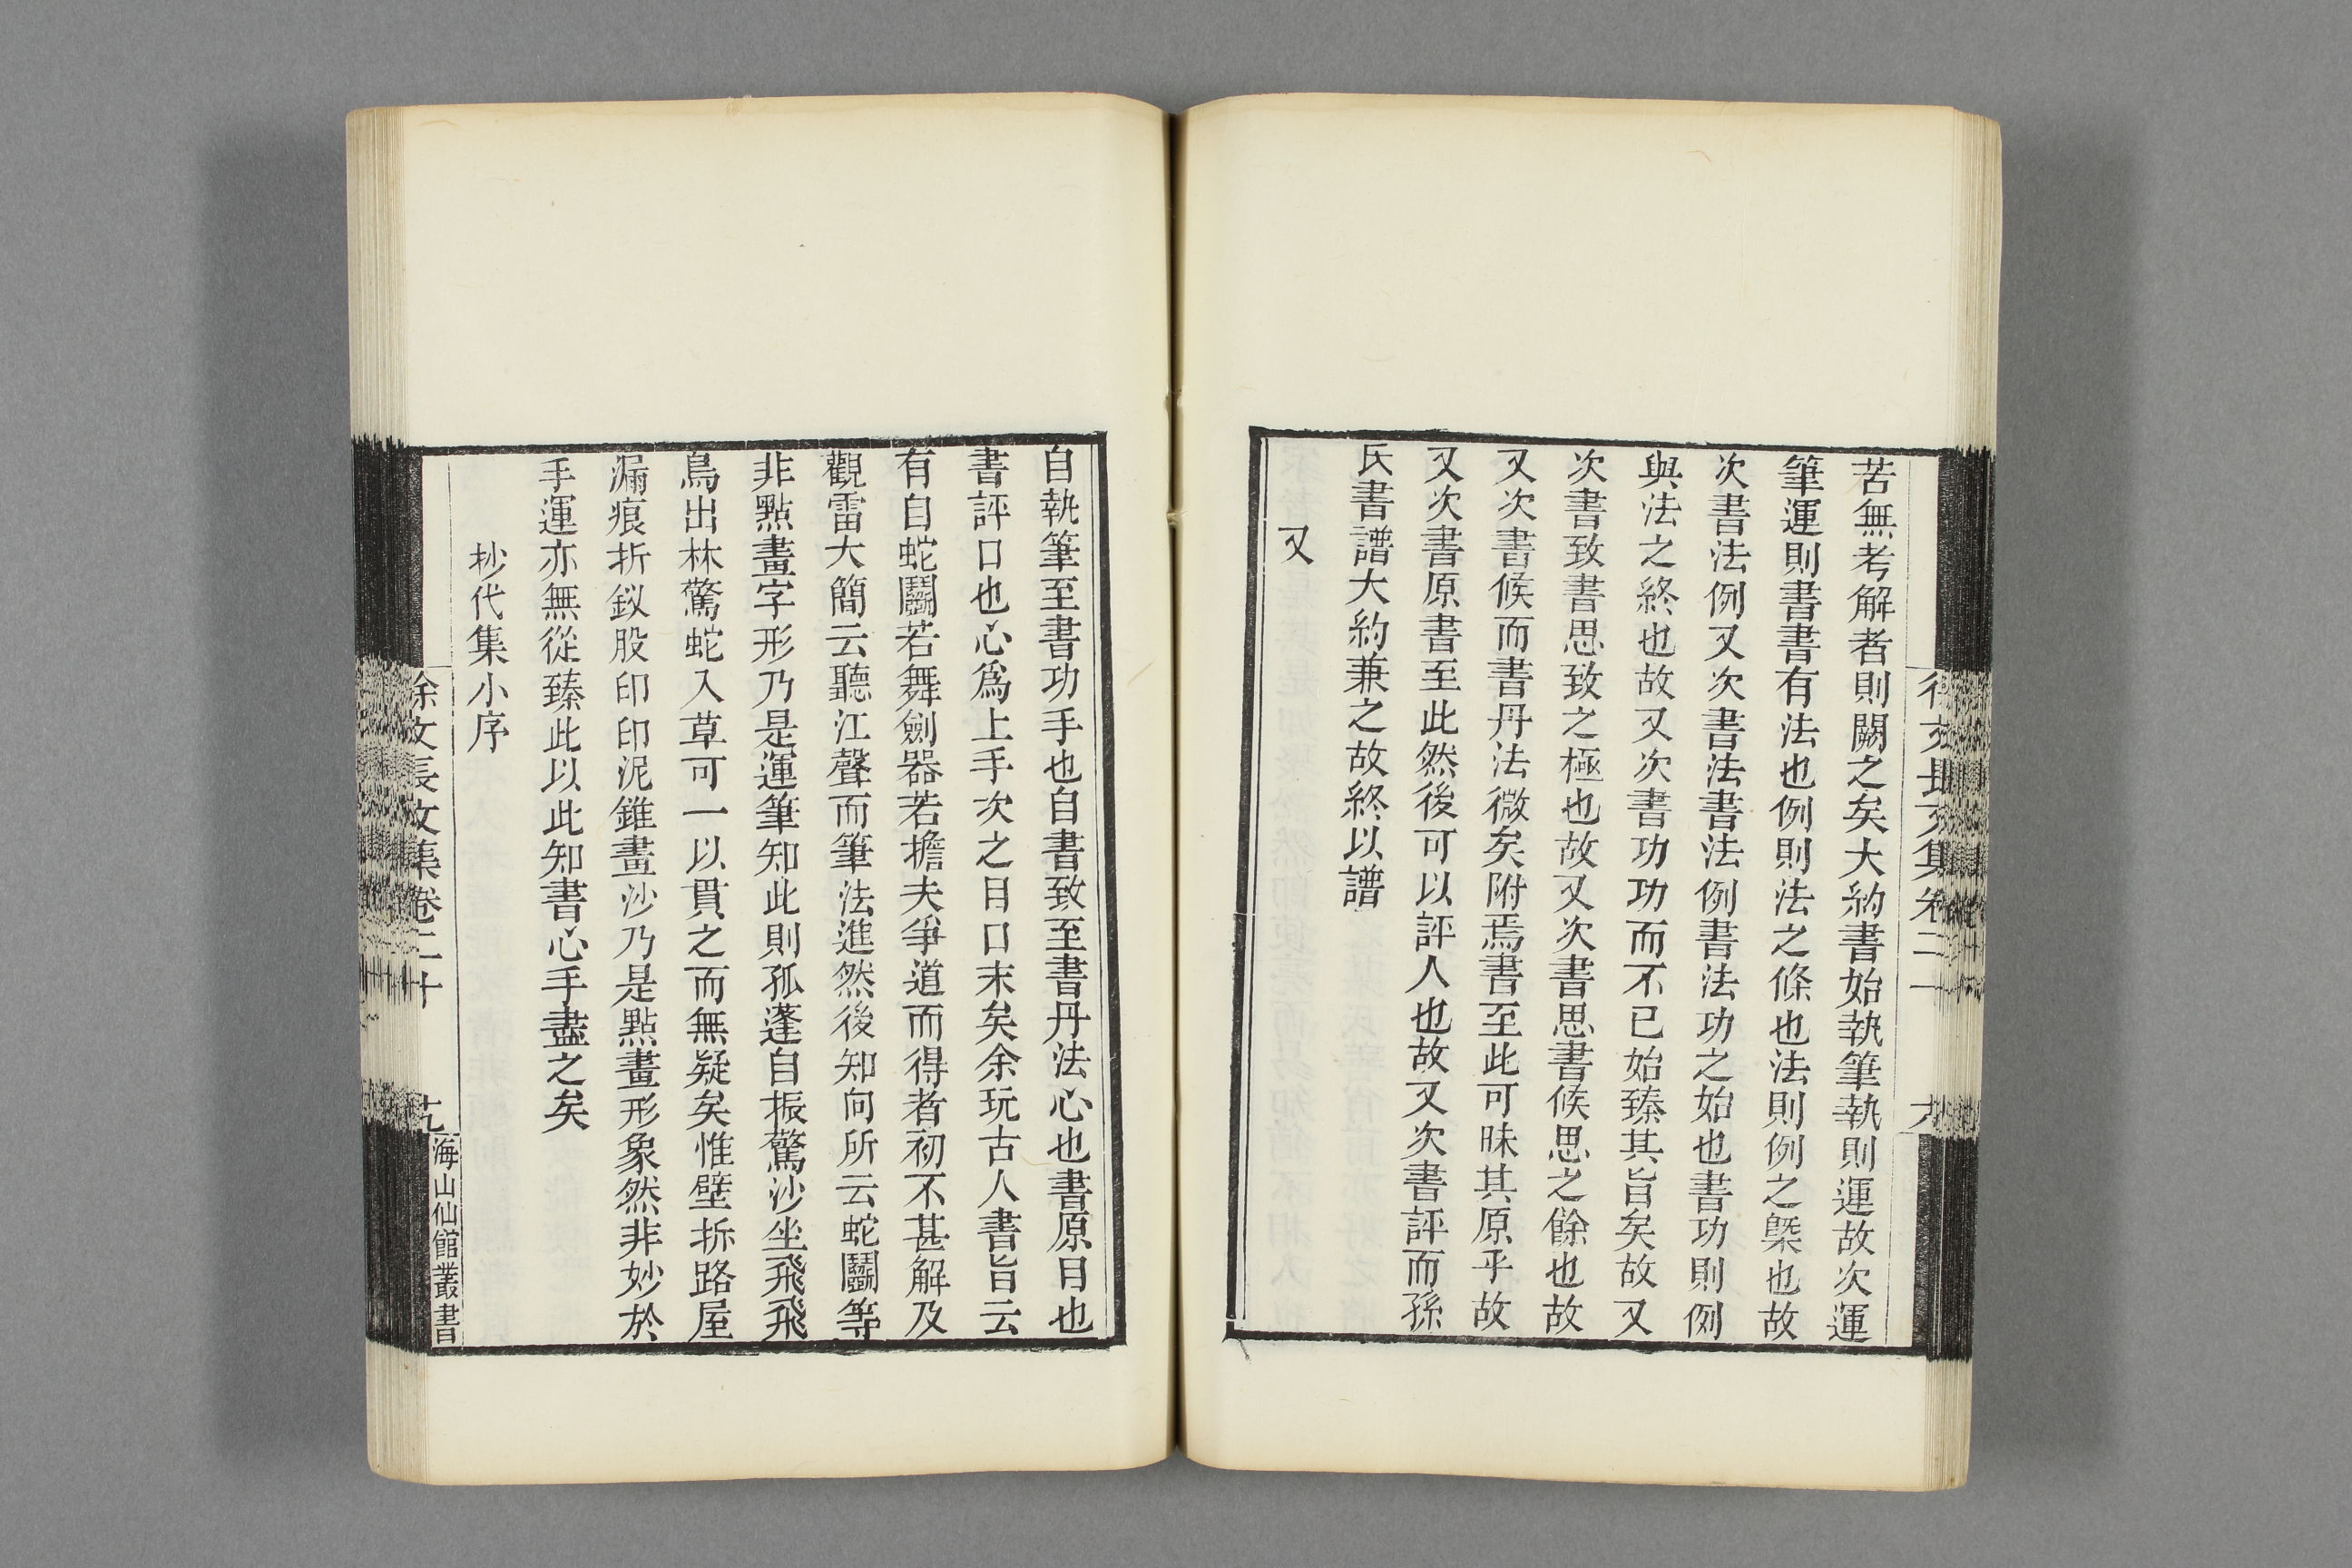 苦無考解者則闕之矣大約書始執筆執則運故次運
筆運則書書有法也例則法之條也法則例之槩也故
次書法例又次書法書法例書法功之始也書功則例
與法之終也故又次書功功而不已始臻其旨矣故又
次書致書思致之極也故又次書思書候思之餘也故
又次書候而書丹法微矣附焉書至此可昧其原乎故
又次書原書至此然後可以評人也故又次書評而孫
氏書譜大約兼之故終以譜
又
自執筆至書功手也自書致至書丹法心也書原目也
書評口也心爲上手次之目口末矣余玩古人書旨云
有自蛇鬭若舞劍器若擔夫爭道而得者初不甚解及
觀雷大簡云聽江聲而筆法進然後知向所云蛇鬭等
非點畫字形乃是運筆知此則孤蓬自振驚沙坐飛飛
鳥出林驚蛇入草可一以貫之而無疑矣惟壁拆路屋
漏痕折釵股印印泥錐畫沙乃是點畫形象然非妙於
手運亦無從臻此以此知書心手盡之矣
抄代集小序
徐文長文集卷二十
海山仙館叢書